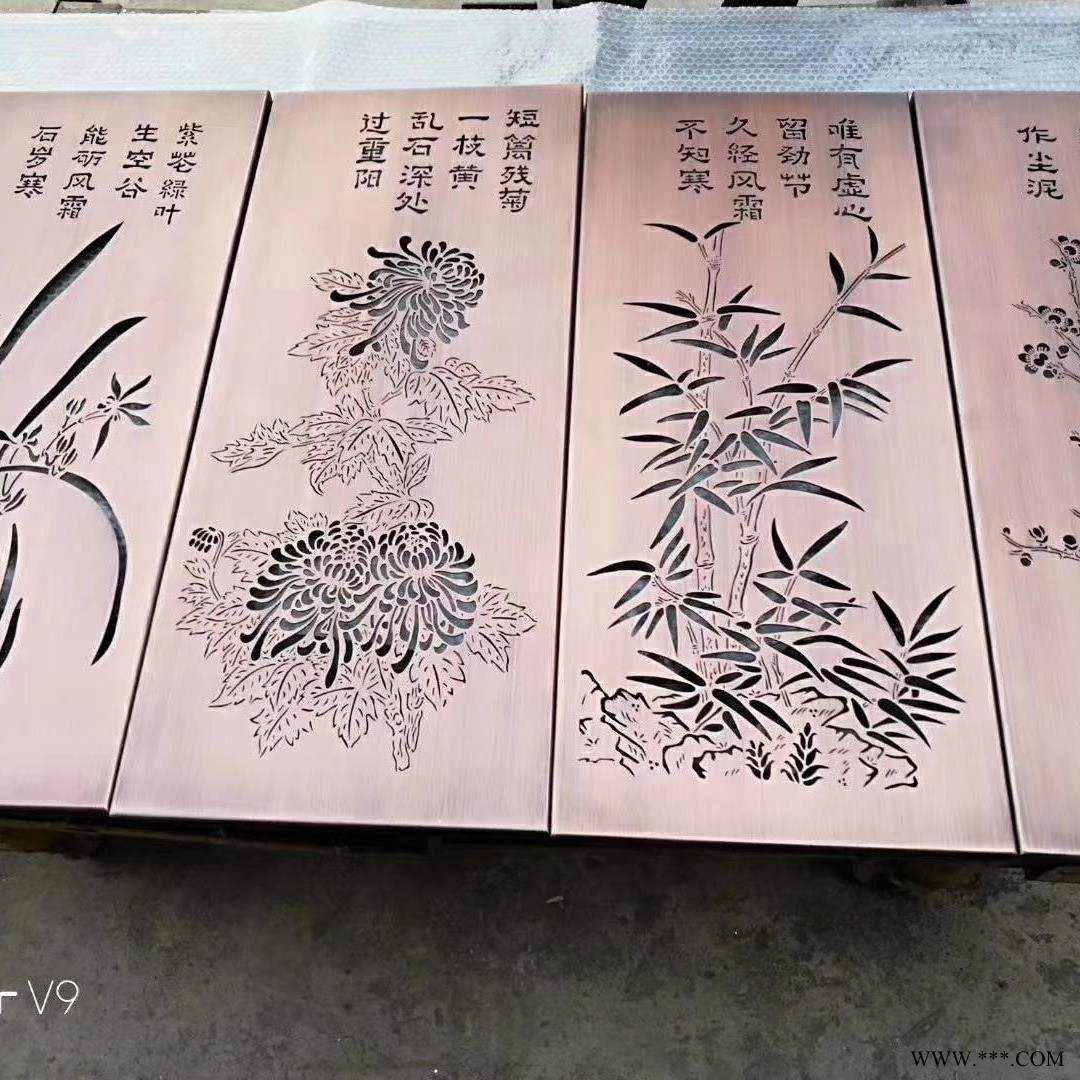 紫花绿叶
生空谷
能风霜
石岁寒
短篱残菊
一枝黄
乱石深处
过重阳
唯有虚心
留劲节
久经风霜
不知寒
作尘泥
V9
WWW.***.COM